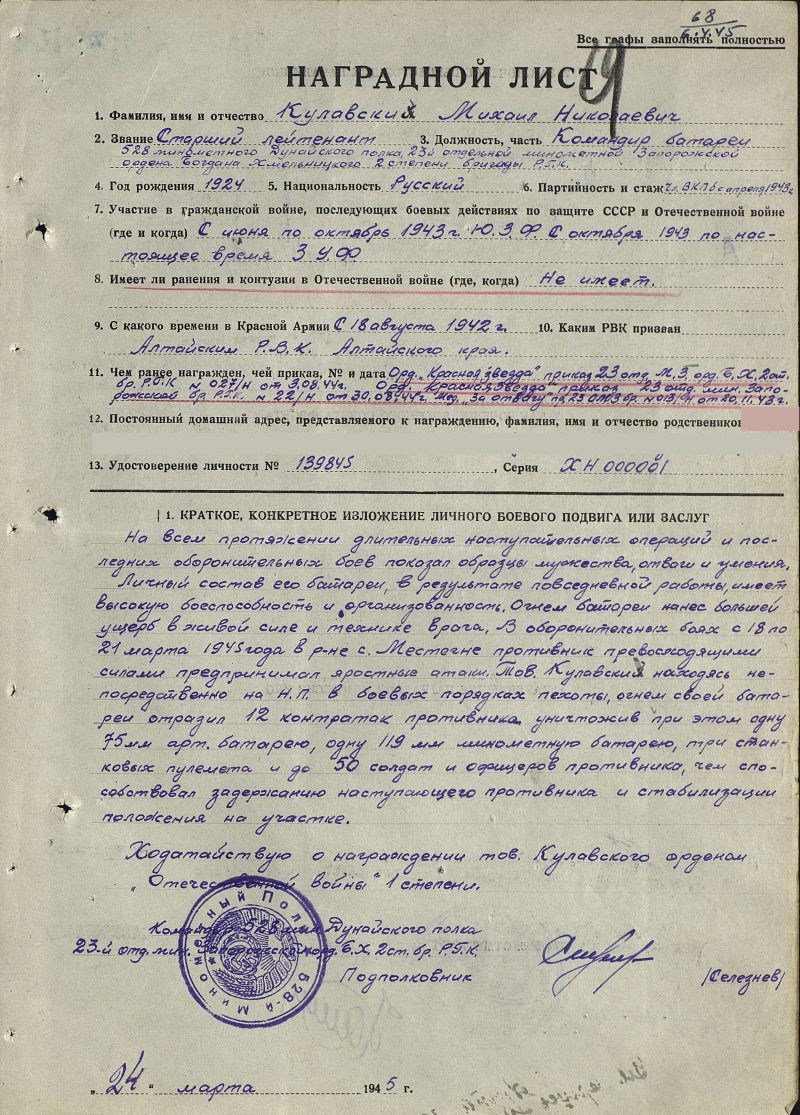 68
6.4.45
Все графы заполнять полностью
19
НАГРАДНОЙ ЛИСТ
1. Фамилия, имя и отчество Кулавский Михаил Николаевич
2. Звание Старший лейтенант 3. Должность, часть Командир батареи
528 минометного Дунайского полка, 23й отдельной минометной Запорожской
ордена Богдана Хмельницкого 2 степени бригады Р.Г.К.
4. Год рождения 1924 5. Национальность Русский 6. Партийность и стаж Чл. ВКПб с апреля 1943г
7. Участие в гражданской войне, последующих боевых действиях по защите СССР и Отечественной войне
(где и когда) С июня по октябрь 1943 г. Ю.З.Ф. С октября 1943 по нас-
тоящее время 3 УФ
8. Имеет ли ранения и контузии в Отечественной войне (где, когда) Не имеет.
9. С какого времени в Красной Армии С 18 августа 1942 г. 10. Каким РВК призван
Алтайским Р.В.К. Алтайского края.
11. Чем ранее награжден, чей приказ, № и дата Орд. „Красная звезда" приказ 23 отд. М.З. орд. Б.Х. 2 ст.
бр. Р.Г.К № 027/н от 3.08.44г. Орд. „Красная звезда" приказ 23 отд. мин. Запо-
рожской бр. Р.Г.К. № 22/н от 30.08.44г. Мед. „За отвагу" пр. 23 ОМЗ бр. № 013/н от 20.11.43 г.
12. Постоянный домашний адрес, представляемого к награждению, фамилия, имя и отчество родственников
13. Удостоверение личности № 139845, Серия ХН 000001
1. КРАТКОЕ, КОНКРЕТНОЕ ИЗЛОЖЕНИЕ ЛИЧНОГО БОЕВОГО ПОДВИГА ИЛИ ЗАСЛУГ
На всем протяжении длительных наступательных операций и пос-
ледних оборонительных боев показал образцы мужества, отваги и умения.
Личный состав его батареи, в результате повседневной работы, имеет
высокую боеспособность и организованность. Огнем батареи нанес большей
ущерб в живой силе и технике врага. В оборонительных боях с 18 по
21 марта 1945 года в р-не с. Местегне противник превосходящими
силами предпринимал яростные атаки. Тов. Кулавский находясь не-
посредственно на Н.П. в боевых порядках пехоты, огнем своей бата-
реи отразил 12 контратак противника уничтожив при этом одну
75мм арт. батарею, одну 119 мм минометную батарею, три стан-
ковых пулемета и до 50 солдат и офицеров противника, чем спо-
собствовал задержанию наступающего противника и стабилизации
положения на участке.
Ходатайствую о награждении тов. Кулавского орденом
„Отечественной войны" 1 степени.
Командир 528 мин Дунайского полка
23-й отд. мин. Запорожской орд. Б.Х. 2ст. бр. Р.Г.К.
Подполковник /Селезнев/
528-й Минометный Полк
„24" марта 1945 г.